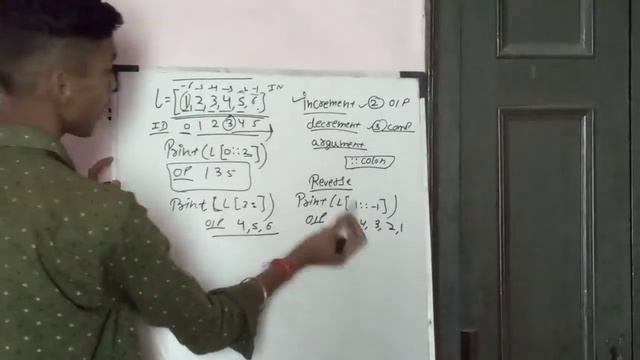 -6 -5 -4 -3 -2 -1
L=[1,2,3,4,5,6] IN
ID 0 1 2 3 4 5
Print(L[0::2])
OP 1 3 5
Print[L[3:])
O/P 4,5,6
✓ increment ② O/P
decrement ③
argument
:: colon
Reverse
Print(L[1::-1])
O/P 4, 3, 2, 1